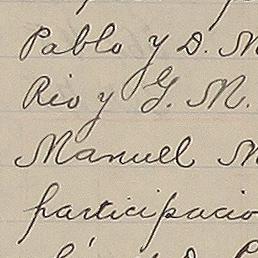 Pablo y D. M
Rio y G. M.
Manuel M
participacio